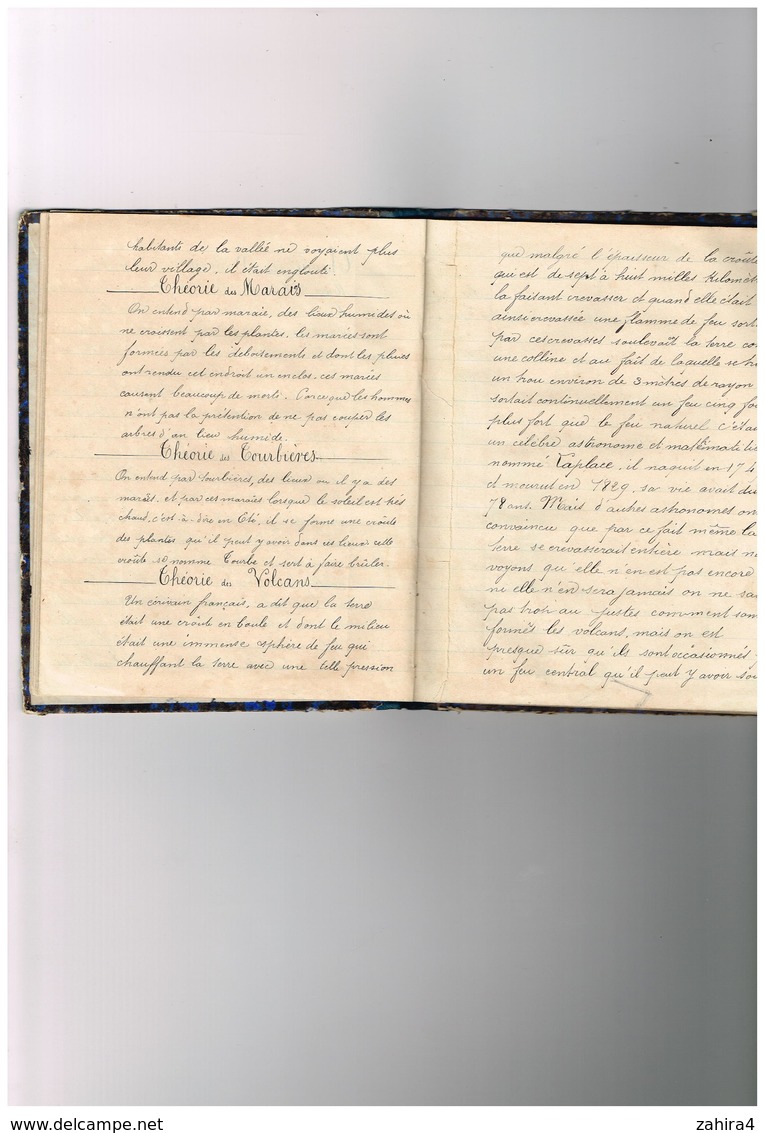 habitants de la vallée ne voyaient plus
leur village. il était englouti.
Théorie des Marais
On entend par marais, des lieux humides où
ne croissent par les plantes. les mariés sont
formées par les déboisements et dont les pluies
ont rendu cet endroit un enclos. ces mariés
causent beaucoup de morts. Parce que les hommes
n'ont pas la prétention de ne pas couper les
arbres d'un lieu humide.
Théorie des Tourbières
On entend par tourbières, des lieux ou il y a des
marais. et par ces marais lorsque le soleil est très
chaud, c'est-à-dire en Eté, il se forme une croûte
des plantes qu'il peut y avoir dans ces lieux cette
croûte se nomme Tourbe et sert à faire brûler.
Théorie des Volcans
Un écrivain français, a dit que la terre
était une croûte en boule et dont le milieu
était une immense sphère de feu qui
chauffant la terre avec une telle pression
que malgré l'épaisseur de la croûte
qui est de sept à huit milles kilomèt
la faisant crevasser et quand elle était
ainsi crevassée une flamme de feu sort
par ces crevasses soulevait la terre co
une colline et au fait de laquelle se h
un trou environ de 3 mètres de rayon
sortait continuellement un feu cinq fo
plus fort que le feu naturel c'éta
un célèbre astronome et mathématic
nommé Laplace, il naquit en 174
et mourut en 1829, sa vie avait du
78 ans. Mais d'autres astronomes on
convaincu que par ce fait même la
terre se crevasserait entière mais n
voyons qu'elle n'en est pas encore
ni elle n'en sera jamais on ne sa
pas trop au justes comment son
formés les volcans, mais on est
presque sûr qu'ils sont occasionnés
un feu central qu'il peut y avoir so
zahira4